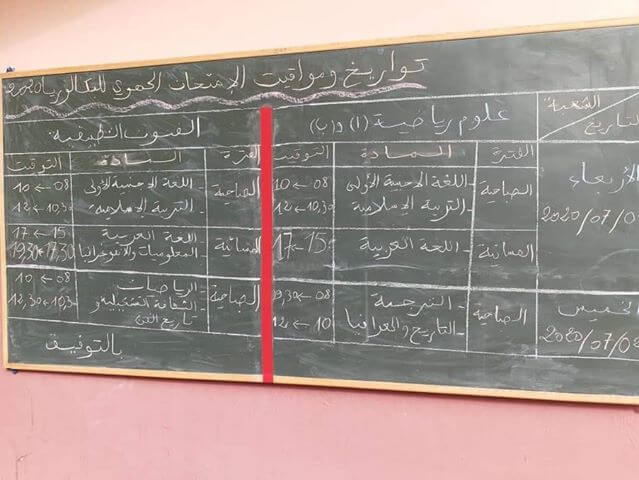 تواريخ ومواقيت الإمتحان الجهوي للبكالوريا 2020
الشعبة
التاريخ
علوم رياضية (أ) و(ب)
الفنون التطبيقية
الفترة المـــادة التوقيت
الفترة المـــادة التوقيت
الأربعاء
2020/07/0
الصباحية
- اللغة الأجنبية الأولى 08 → 10
- التربية الإسلامية 10,30 → 12
المسائية
- اللغة العربية 15 → 17
الخميس
2020/07/0
الصباحية
- الترجمة 08 → 9,30
- التاريخ والجغرافيا 10 → 12
الصباحية
- اللغة الأجنبية الأولى 08 → 10
- التربية الإسلامية 10,30 → 12
المسائية
- اللغة العربية 15 → 17
- المعلوميات والانفوغرافيا 17,30 → 19,30
الصباحية
- الرياضيات 08 → 10
- الثقافة التشكيلية و 10,30 → 12,30
تاريخ الفن
بالتوفيق